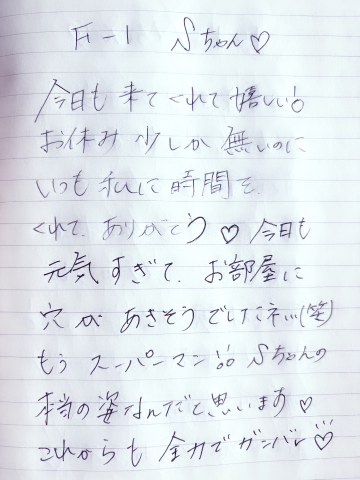 F-1 Sちゃん♡
今日も来てくれて嬉しい!!
お休み少しか無いのに
いつも私に時間を
くれて、ありがとう♡今日も
元気すぎて、お部屋に
穴があきそうでしたネ…(笑)
もうスーパーマン!!Sちゃんの
本当の姿なんだと思います♡
これからも全力でガンバレ♡